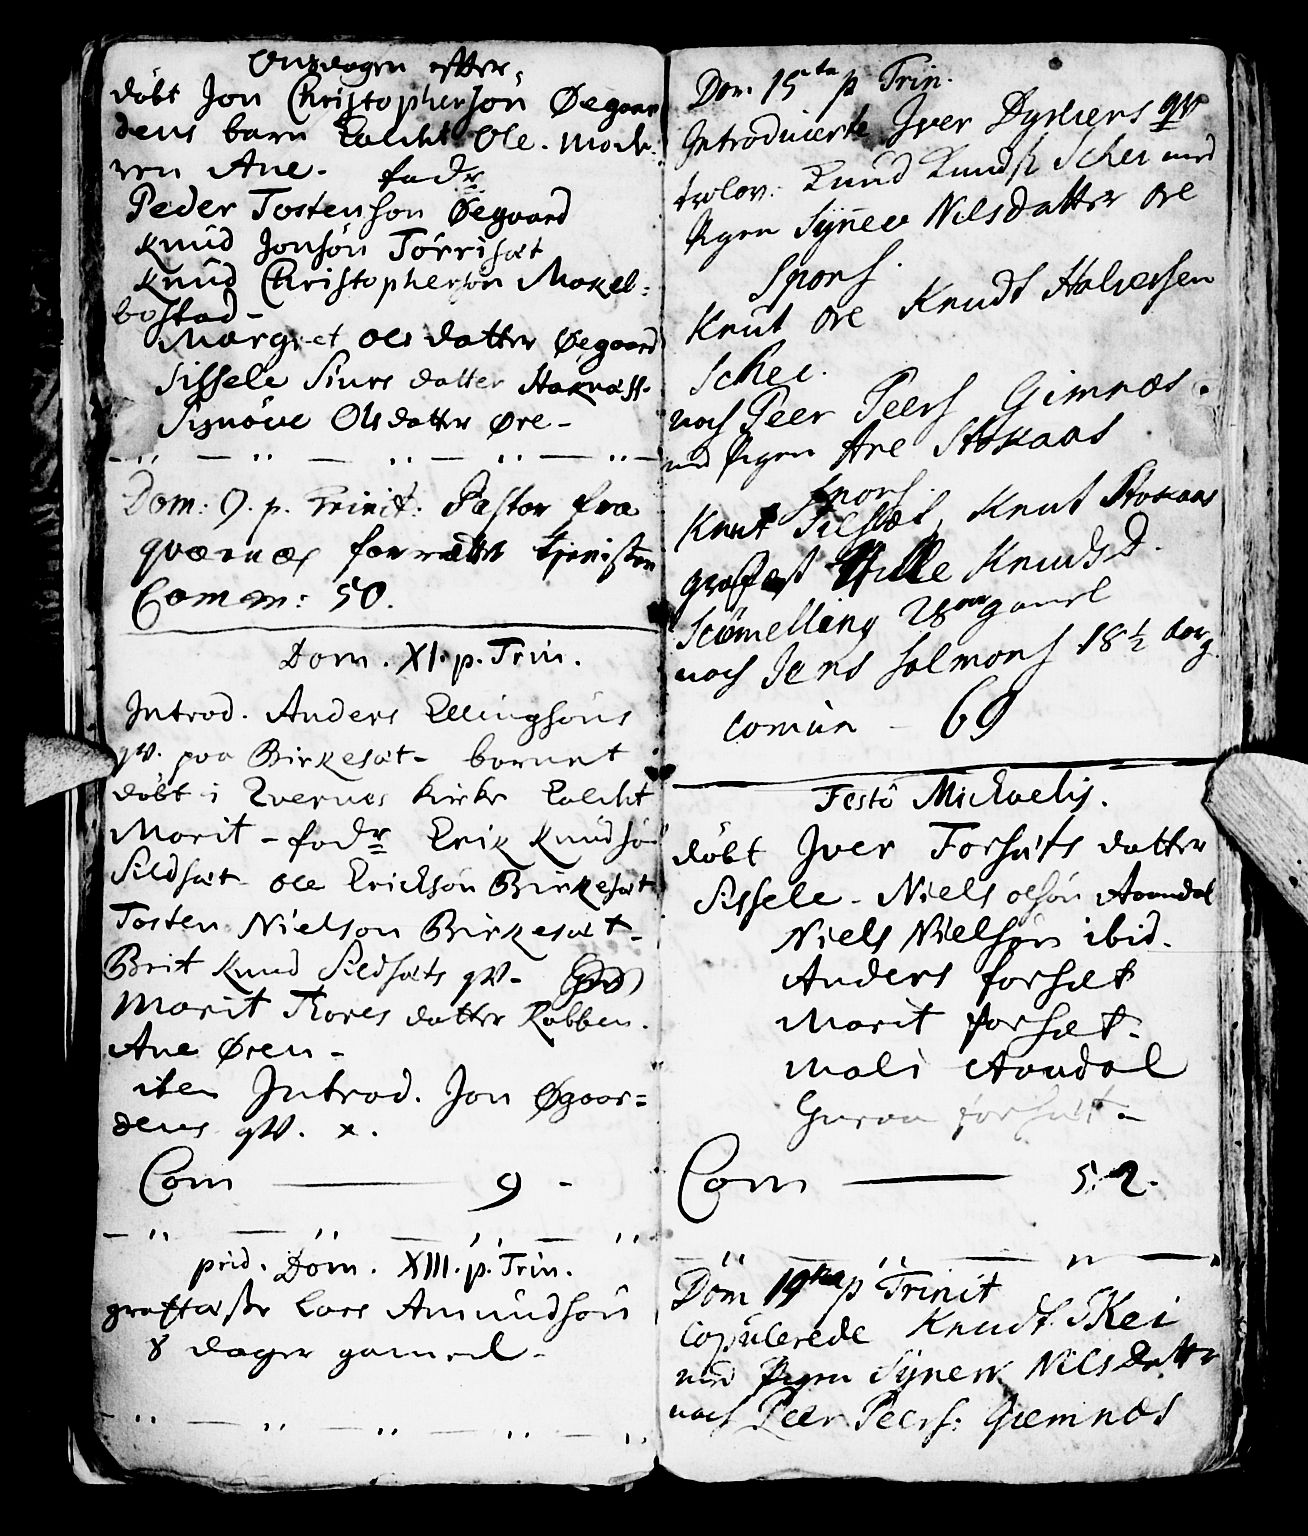 Onsdagen efter,
döbt Jon Christopherson Øegaar
dens barn kaldet Ole. mode
ren Ane. fadr
Peder Tostenson Øegaard
Knud Jonsön Törrisæt
Knud Christopherson Mekel-
bostad-
Margret Ols datter Øegaard
Sissele Siurs datter
Signöve Olsdatter Øre-
Dom: 9. p. Trinit: Pastor fra
qværnæs forrættet tjenisten
Comm: 50.
Dom. XI. p. Trin.
Introd. Anders Ellingsöns
qv. paa Birkesæt- barnet
döbt i Qvernes kirke kaldet
Marit - fadr Erik Knudsö
Sildsæt- Ole Ericksön Birkesæt
Tosten Nielson Birkesæt-
Brit Knud Sildsæts qv-
Marit Tores datter Rabben.
Ane Øren-
iten Introd. Jon Øgaar=
dens qv. x.
Com 9 -
prid. Dom. XIII. p. Trin.
graffæste Lars Amundsön
8 dager gamel-
Dom 15ta p Trin.
Introducerte Iver Dyrliens qv
trolov: Knud Knuds Schei med
Pigen Synev Nilsdatter Øre
Spons.
Knut Øre Knudt Halversen
Schei.
noch Peer Peers Gimnæs.
med Pigen Ane Stokaas
spons.
Knut Silset, Knut Stokaas
grafest Knudsd.
aar gamel
noch Jens Salmons 18½ aar g.
Comun - 69
Festo Michaelis.
döbt Iver Forsæts datter
Sissele - Niels olsön Aarndal
Niels Nielsön ibid.
Anders forsæt
Marit forsæt-
Mali Aarudal
Guroa forsæt-
Com 52-
Dom 19na p Trinit
Copulerede Knudt Skei
med Pigen Synev Nilsdatter
noch Peer Peers: Giemnæs